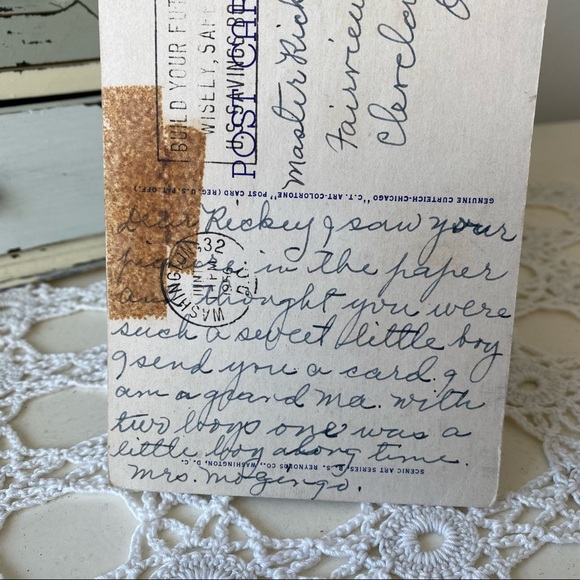 BUILD YOUR FUT
WISELY, SAFE
U.S. SAVINGS BO
POST CAR
Master Rick
Fairview
Clevela
GENUINE CURTEICH-CHICAGO "C.T. ART-COLORTONE" POST CARD (REG. U.S. PAT. OFF.)
WASHINGTON, D.C.
32
JUN
PM
1956
Dear Rickey I saw your
picture in the paper
and thought you were
such a sweet little boy
I send you a card. I
am a grand ma. with
two boys one was a
little boy along time.
Mrs.
SCENIC ART SERIES, S. REYNOLDS CO., WASHINGTON, D. C.